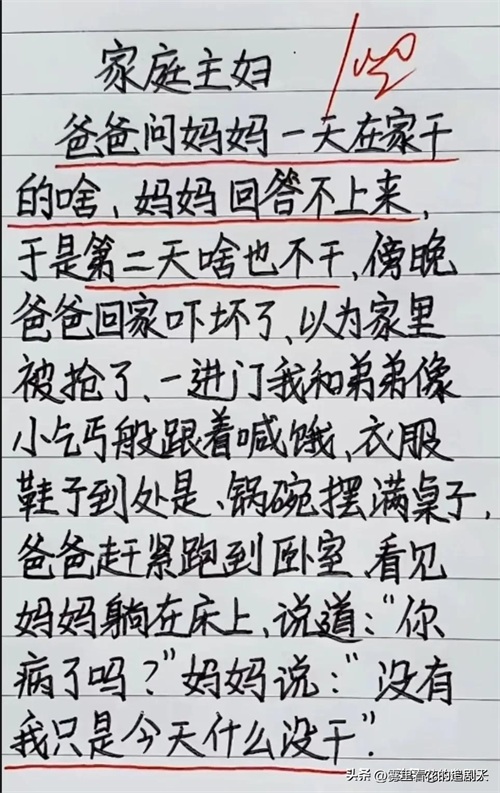 家庭主妇
爸爸问妈妈一天在家干
的啥、妈妈回答不上来,
于是第二天啥也不干,傍晚
爸爸回家吓坏了、以为家里
被抢了、一进门我和弟弟像
小乞丐般跟着喊饿、衣服
鞋子到处是、锅碗摆满桌子,
爸爸赶紧跑到卧室、看见
妈妈躺在床上、说道:“你
病了吗?”妈妈说:“没有
我只是今天什么没干”.
头条 @雾里看花的追剧人